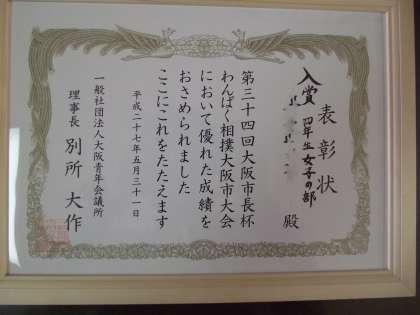 表彰状
入賞 四年生女子の部
殿
第三十四回大阪市長杯
わんぱく相撲大阪市大会
において優れた成績を
おさめられました
ここにこれをたたえます
平成二十七年五月三十一日
一般社団法人大阪青年会議所
理事長 別所 大作